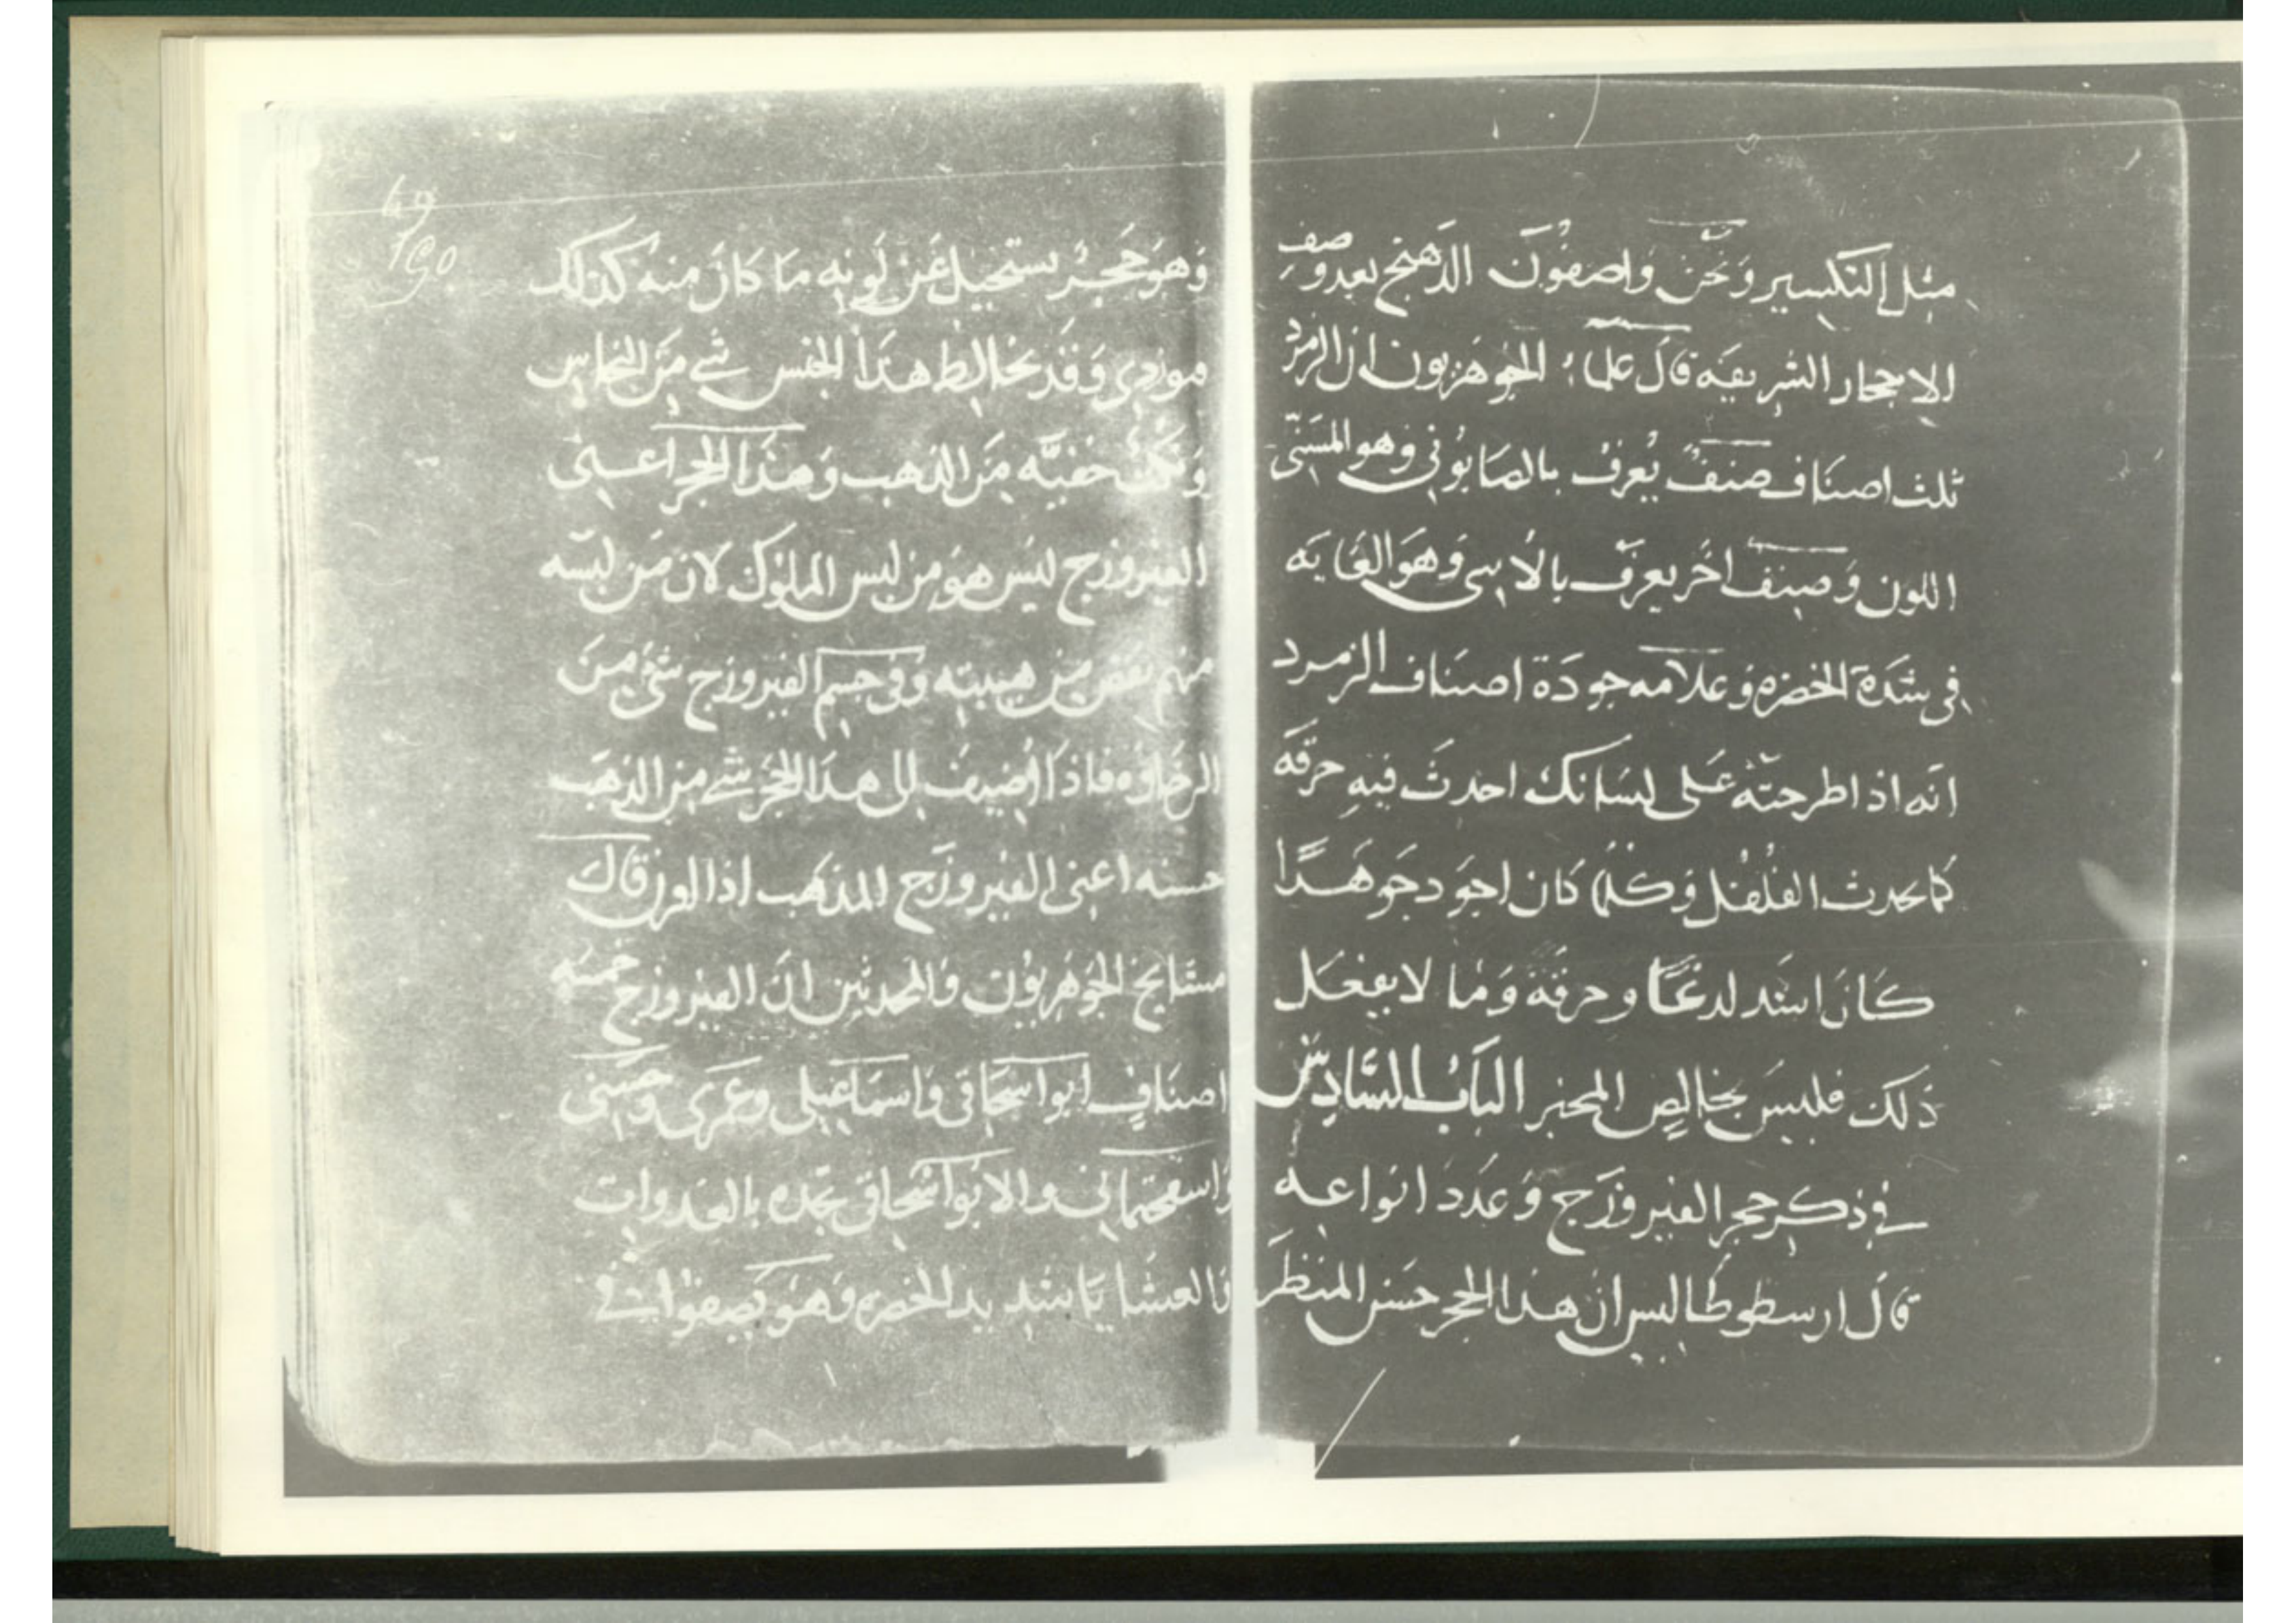 مثل التكسير وَنحَن وَاصفُونَ الدَهنج بعد وَصف
الاحجار الشريفَه قالَ علما؛ الجوهَريون ان الزمرد
ثلث اصنَاف صنفٌ يُعرفُ بالصَابوُني وَهو المسَنّى
اللون وَصنف اخَر يعرَف بالاسى وَهوَ الغَايَه
فى شدَة الخضره وَعلامه جودَة اصنَاف الزمرد
انَه اذا طرحتَه عَلى لسَانك احدثَ فيه حرقَه
كما يحدث الفُلفُل وَكلما كان اجوَد جَوهَرًا
كَانَ اشَد لدغًا وحرقَة وَما لا يفعَل
ذَلك فليسَ بخالصِ المخبر البَابُ السَّادِسُ
فى ذكر حجر الفيروزَج وَعَدَد انواعه
قالَ ارسطوطاليس ان هذا الحجر حسَن المنظَر
49
190
وَهوَ حَجرٌ يستحيل عَن لَونه مَا كانَ منهُ كذلك
مودى وَقَد يخالط هذَا الجنس شى مَن النحاس
وَنكتُ خفيَّه مَن الذهب وَهذَا الحجر اعنى
الفيروزج ليَس هوَ من لبس الملوُك لان مَن لبسَه
منهم نقص من هيبته وَفى جسم الفيروزج شىُ منَ
الرخَاوَه فاذَا اُضيفَ الى هذا الحجَر شى من الذهَب
حسنه اعنى الفيروزَج المذهَب اذا الورق قالَ
مشَايخ الجَوهَريوُن وَالمحدثين انَ الفيروزج خمسَه
اصنَافٍ ابو اسحَاقى وَاسمَاعيلى وعَمرى وَحسَنى
والابُواسحَاقى تجَده بالغدوات
وَالعشَايَا شديد الخضره وَهوَ يَصفوا فى